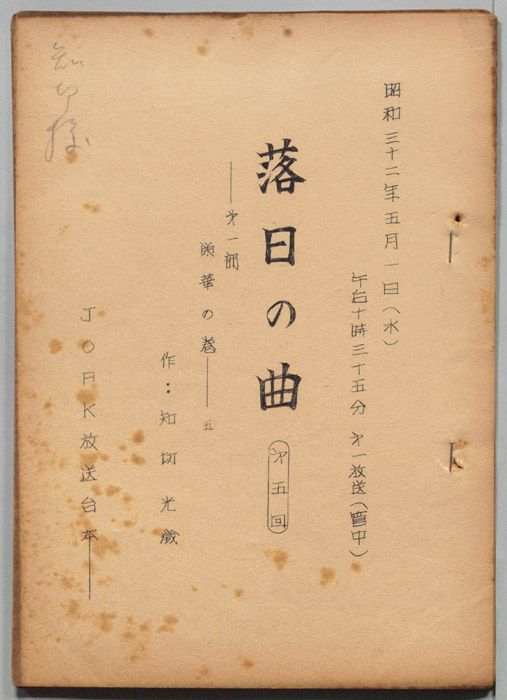 昭和三十二年五月一日(水)
午后十時三十五分 才一放送(宵中)
落日の曲
才五回
——才一部
華の巻——
作:知切光歳
JOAK放送台本——
知切様